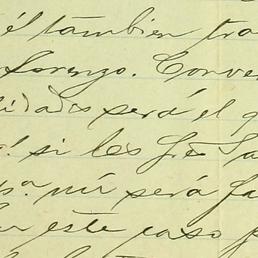 él tambien tra
Lorenzo. Conve
idades será el q
si les
pª mí será fa
este caso p